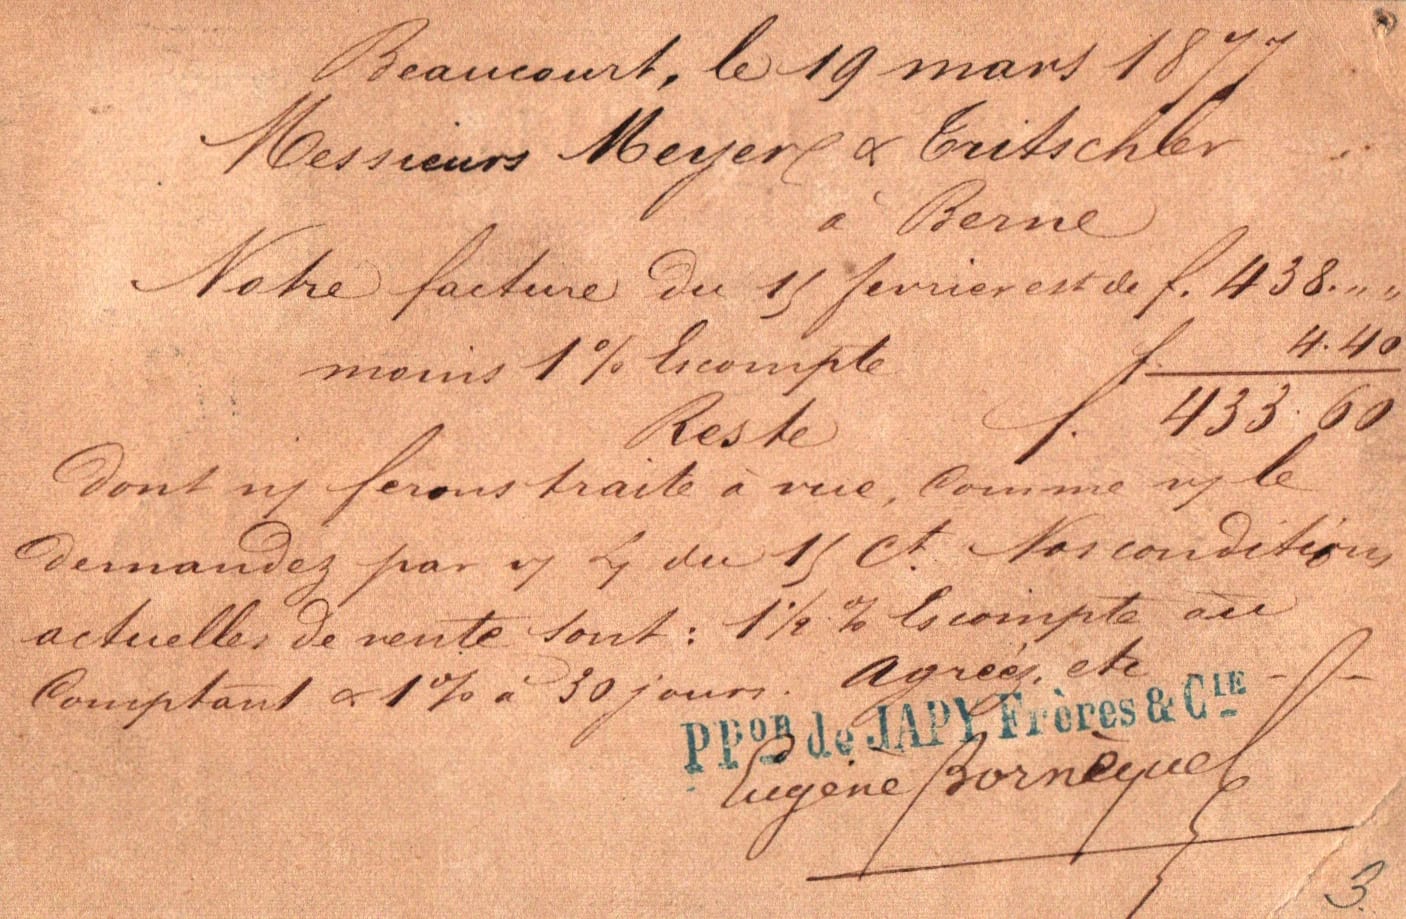 Beaucourt, le 19 mars 1877
Messieurs Meyer & Tritschler
à Berne
Notre facture du 15 fevrier est de f. 438. " "
moins 1 % Escompte f. 4.40
Reste f. 433.60
dont ns ferons traite à vue, comme vs le
demandez par du 15 ct. Nos conditions
actuelles de vente sont : 1 1/2 % Escompte au
Comptant & 1 % à 30 jours. Agréez, etc
PPon de JAPY Frères & CIE
Eugène Bornèque
3.